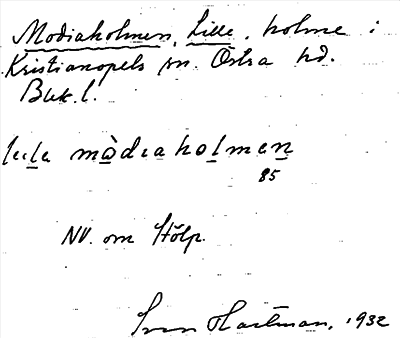 Modiaholmen, Lille, holme i
Kristianopels sn. Östra hd.
Blek. l.
lɩla mòdɩaholmen
85
NV. om Stölp.
Sven Hartman, 1932